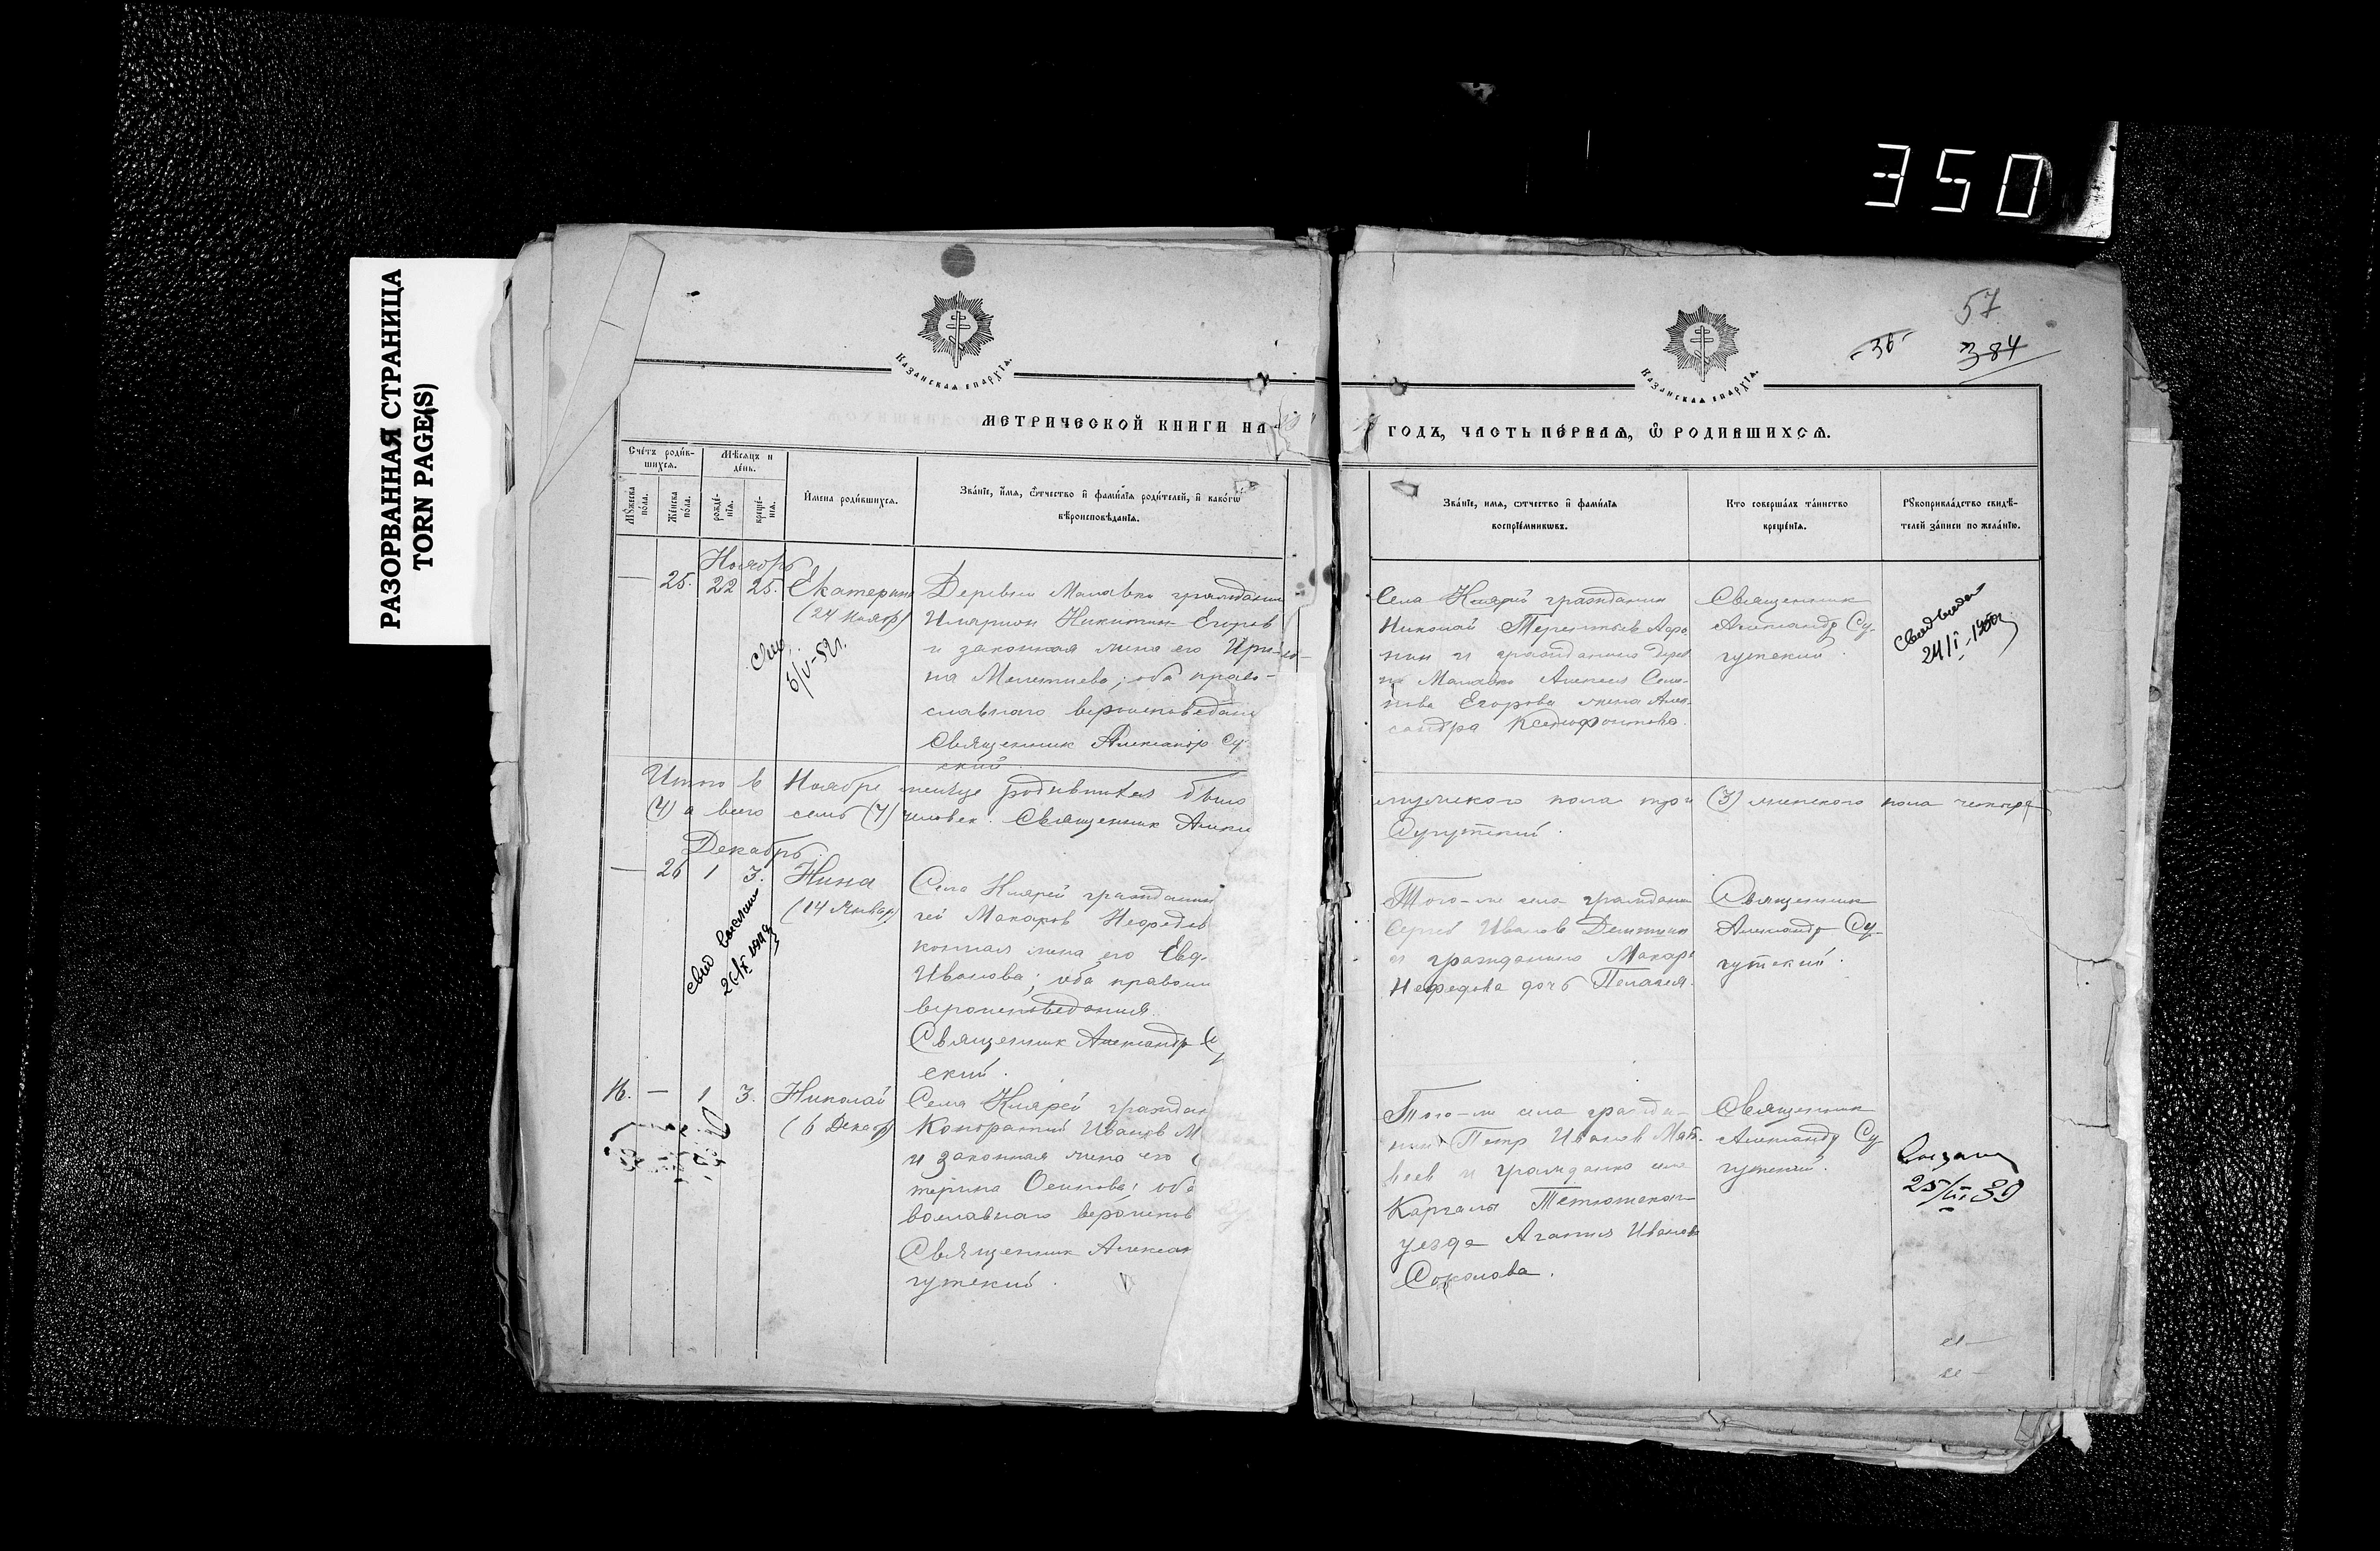 350
РАЗОРВАННАЯ СТРАНИЦА
TORN PAGE(S)
57
36
384
КАЗАНСКАЯ ЕПАРХІЯ.
КАЗАНСКАЯ ЕПАРХІЯ.
МЕТРИЧЕСКОЙ КНИГИ НА
ГОДЪ, ЧАСТЬ ПЕРВАЯ, Ѡ РОДИВШИХСЯ.
Счетъ родив-
шихся.
Мѣсяцъ и
день.
Мужеска
пола.
Женска
пола.
рожде-
нія.
креще-
нія.
Имена родившихся.
Званіе, имя, ѿчество и фамилія родителей, и какогѡ
вѣроисповѣданія.
Званіе, имя, ѿчество и фамилія
воспріемникѡвъ.
Кто совершалъ таинство
крещенія.
Рукоприкладство свидѣ-
телей записи по желанію.
Ноябрь
— 25. 22 25. Екатерина
(24 Нояб)
5/V-52г.
Деревни Малавки граждани
Иларион Никитин Егоров
и законная жена его Ири-
на Мелентиева; оба право-
славнаго вероисповедани
Священник Александр Су-
ский
Села Клярей гражданин
Николай Терентьев
нин и гражданина Дерев
ни Малавки Алексея Семе-
нова Егорова жена Алек-
сандра Ксенофонтова.
Священник
Александр Су-
гутский.
24/I-1950г
Итого в Ноябре месяце родившихся было
мужского пола три (3) женского пола четыре
(4) а всего семь (7) человек. Священник Алекс
Сугутский.
Декабрь
— 26 1 3. Нина
(14 Январ)
Села Клярей гражданин
гей Макаров Нефедов
конная жена его Евд
Иванова; оба правосл
вероисповедания.
Священник Александр Су
ский.
Того-же села граждани
Сергей Иванов
и гражданина Макара
Нефедова дочь Пелагея.
Священник
Александр Су-
гутский.
16. — 1 3. Николай
(6 Декаб)
Села Клярей граждан
Кондратий Иванов М
и законная жена его
терина Осипова; оба
вославнаго вероисповед
Священник Алексан
гутский.
Того-же села гражда-
нин Петр Иванов Мат-
веев и гражданка села
Каргалы Тетюшскаго
уезда Агафия Иванова
Соколова.
Священник
Александр Су
гутский.
Выдано